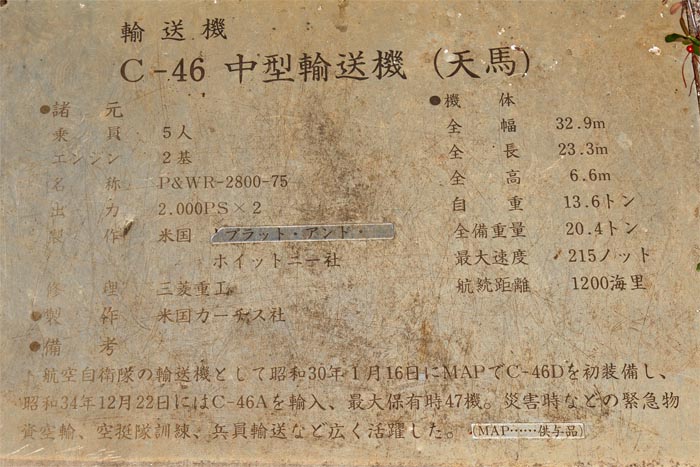 輸送機
C-46 中型輸送機 (天馬)
●諸元
乗員 5人
エンジン 2基
名称 P&WR-2800-75
出力 2.000PS×2
製作 米国 プラット・アンド・
ホイットニー社
修理 三菱重工
●製作 米国カーチス社
●機体
全幅 32.9m
全長 23.3m
全高 6.6m
自重 13.6トン
全備重量 20.4トン
最大速度 215ノット
航続距離 1200海里
●備考
航空自衛隊の輸送機として昭和30年1月16日にMAPでC-46Dを初装備し、
昭和34年12月22日にはC-46Aを輸入、最大保有時47機。災害時などの緊急物
資空輸、空挺隊訓練、兵員輸送など広く活躍した。(MAP……供与品)